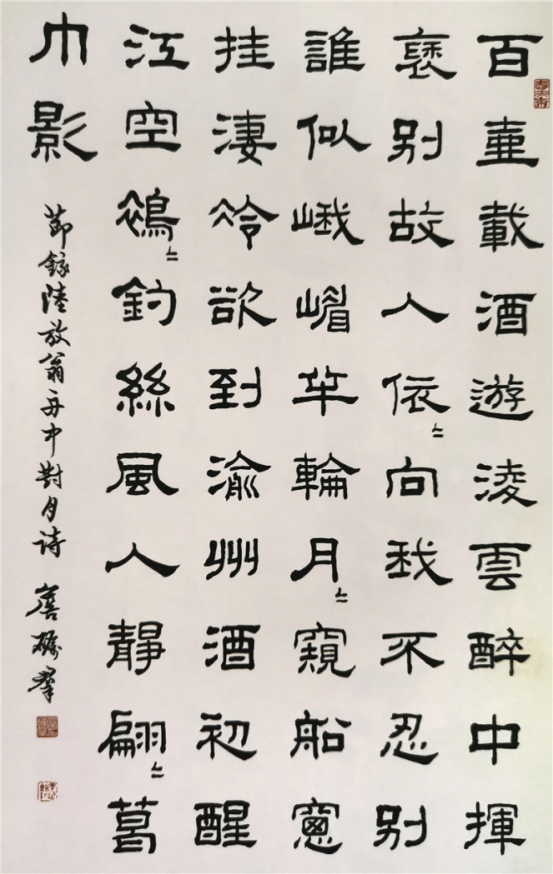 百壺載酒遊淩雲醉中揮
褎別故人依〻向我不忍別
誰似峨嵋半輪月〻窺船窻
挂淒冷欲到渝州酒初醒
江空裊〻釣絲風人靜翩〻葛
巾影
節錄陸放翁舟中對月诗